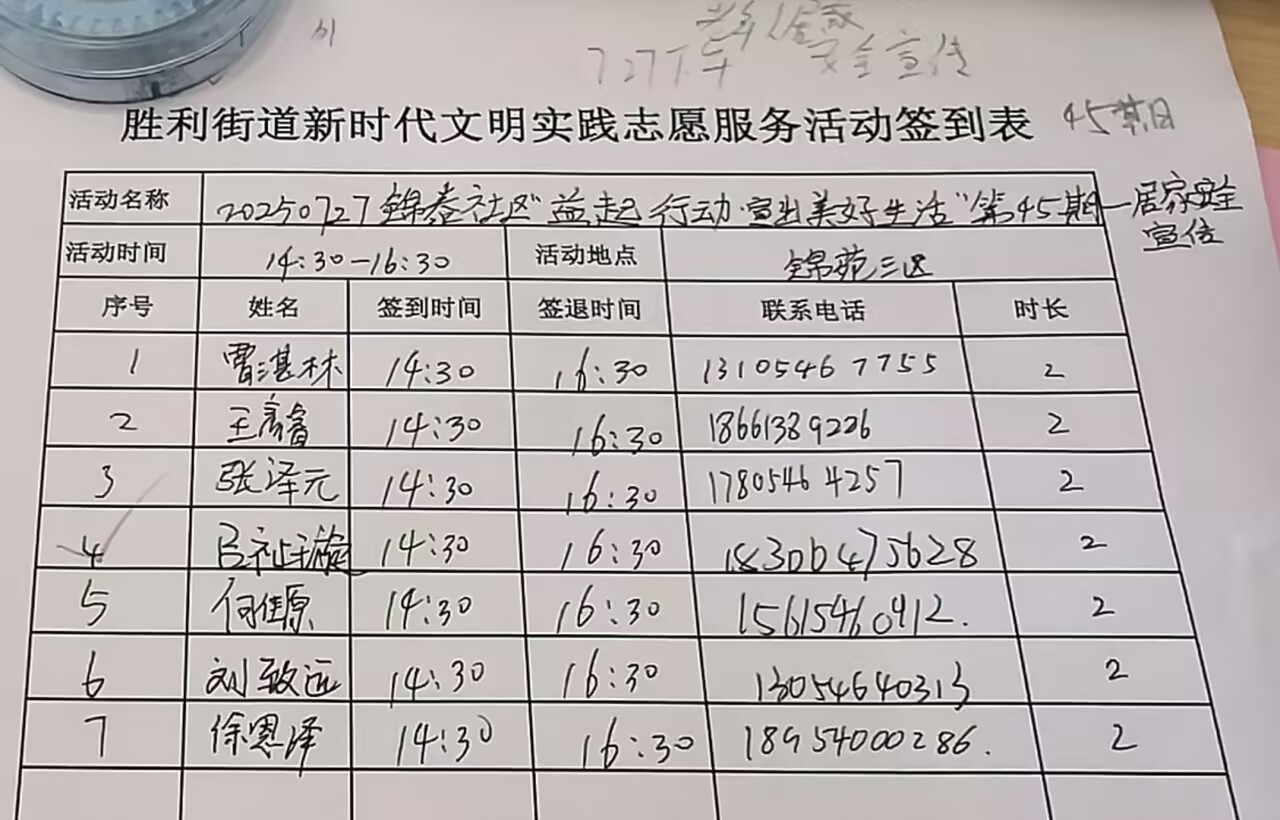 7.27下午 安全宣传
胜利街道新时代文明实践志愿服务活动签到表 45期
活动名称 20250727锦泰社区"益起行动·宣出美好生活"第45期—居家安全
宣传
活动时间 14:30-16:30 活动地点 锦苑三区
序号 姓名 签到时间 签退时间 联系电话 时长
1 贾湛林 14:30 16:30 13105467755 2
2 王彦睿 14:30 16:30 18661389226 2
3 张泽元 14:30 16:30 17805464257 2
4 吕祉璇 14:30 16:30 18306475628 2
5 何佳原 14:30 16:30 15615460912. 2
6 刘致远 14:30 16:30 13054640313 2
7 徐恩泽 14:30 16:30 18954000286. 2